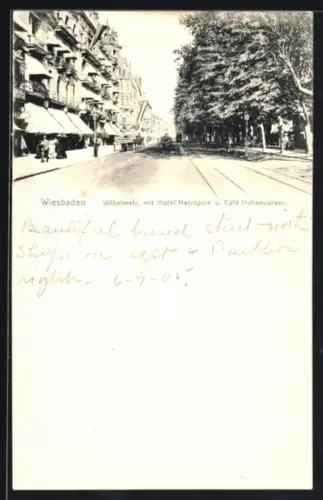 Wiesbaden Wilhelmstr. mit Hotel Metropole u. Café Hohenzollern.
Beautiful broad street with
Shops on left & Park on
right. 6-7-05